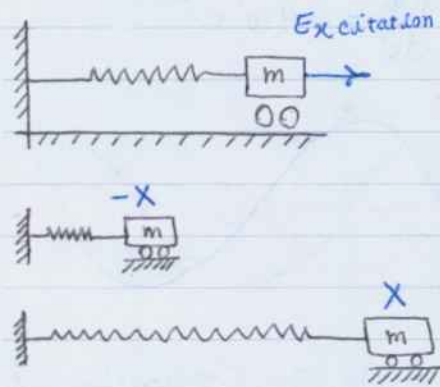 Excitation
m
-X
m
X
m